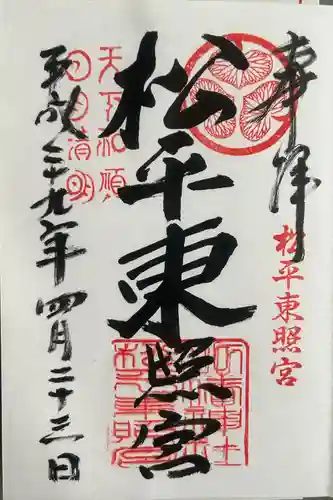 奉拝
松平東照宮
松平東照宮
天下和順
日月清明
平成二十九年四月二十三日